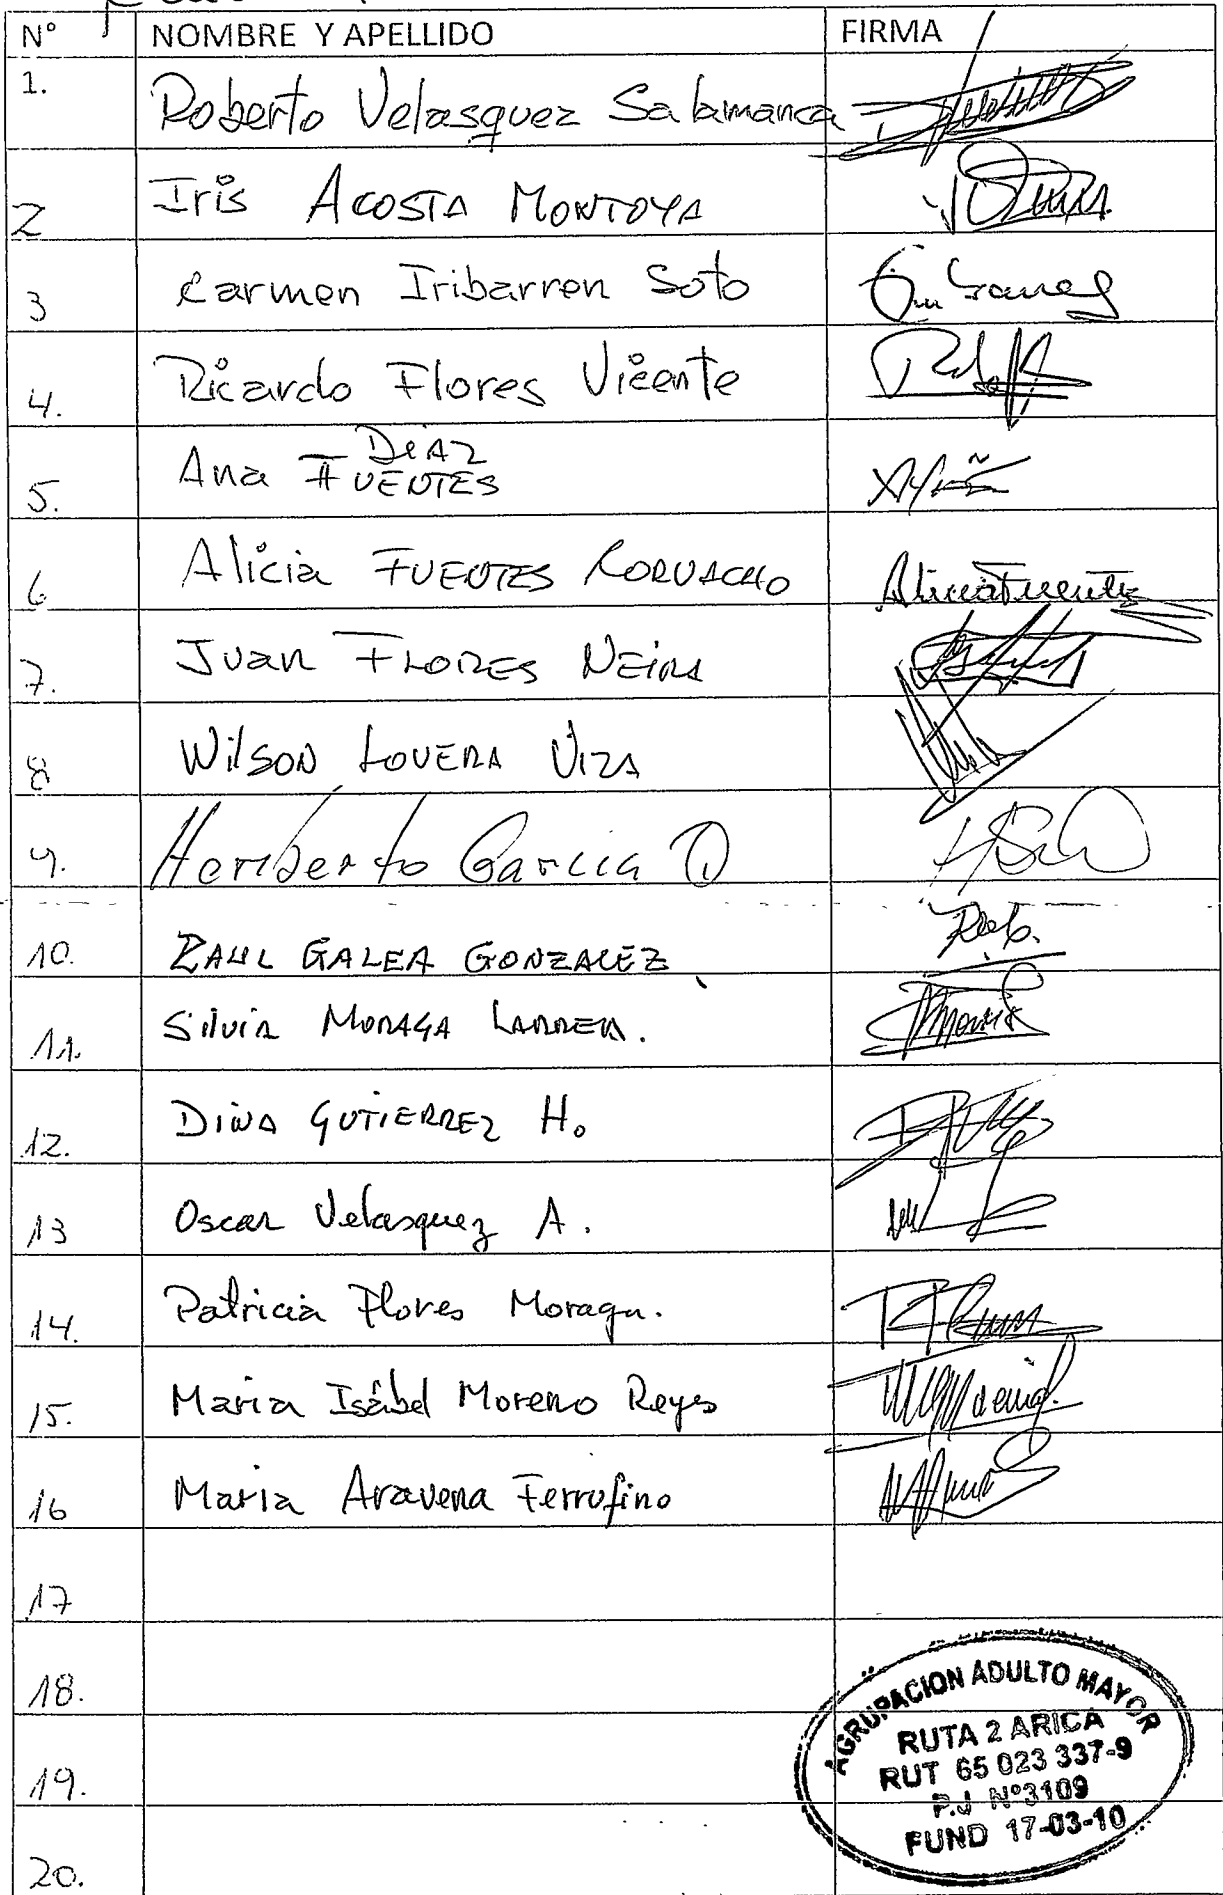 N° NOMBRE Y APELLIDO FIRMA
1. Roberto Velasquez Salamanca
2 Iris ACOSTA MONTOYA
3 Carmen Iribarren Soto
4. Ricardo Flores Vicente
DiAZ
5. Ana FUENTES
6 Alicia FUENTES CORVACHO Alicia Fuentes
7. Juan FLORES NEIRA
8 WilSON LOVERA VIZA
9. Heriberto Garcia O
10. RAUL GALEA GONZALEZ
11. SilviA MORAGA LARREA.
12. DiNA GUTIERREZ H.
13 Oscar Velasquez A.
14. Patricia Flores Moraga.
15. Maria Isabel Moreno Reyes
16 Maria Aravena Ferrufino
17
18.
19.
20.
AGRUPACION ADULTO MAYOR
RUTA 2 ARICA
RUT 65 023 337-9
P.J N°3109
FUND 17-03-10